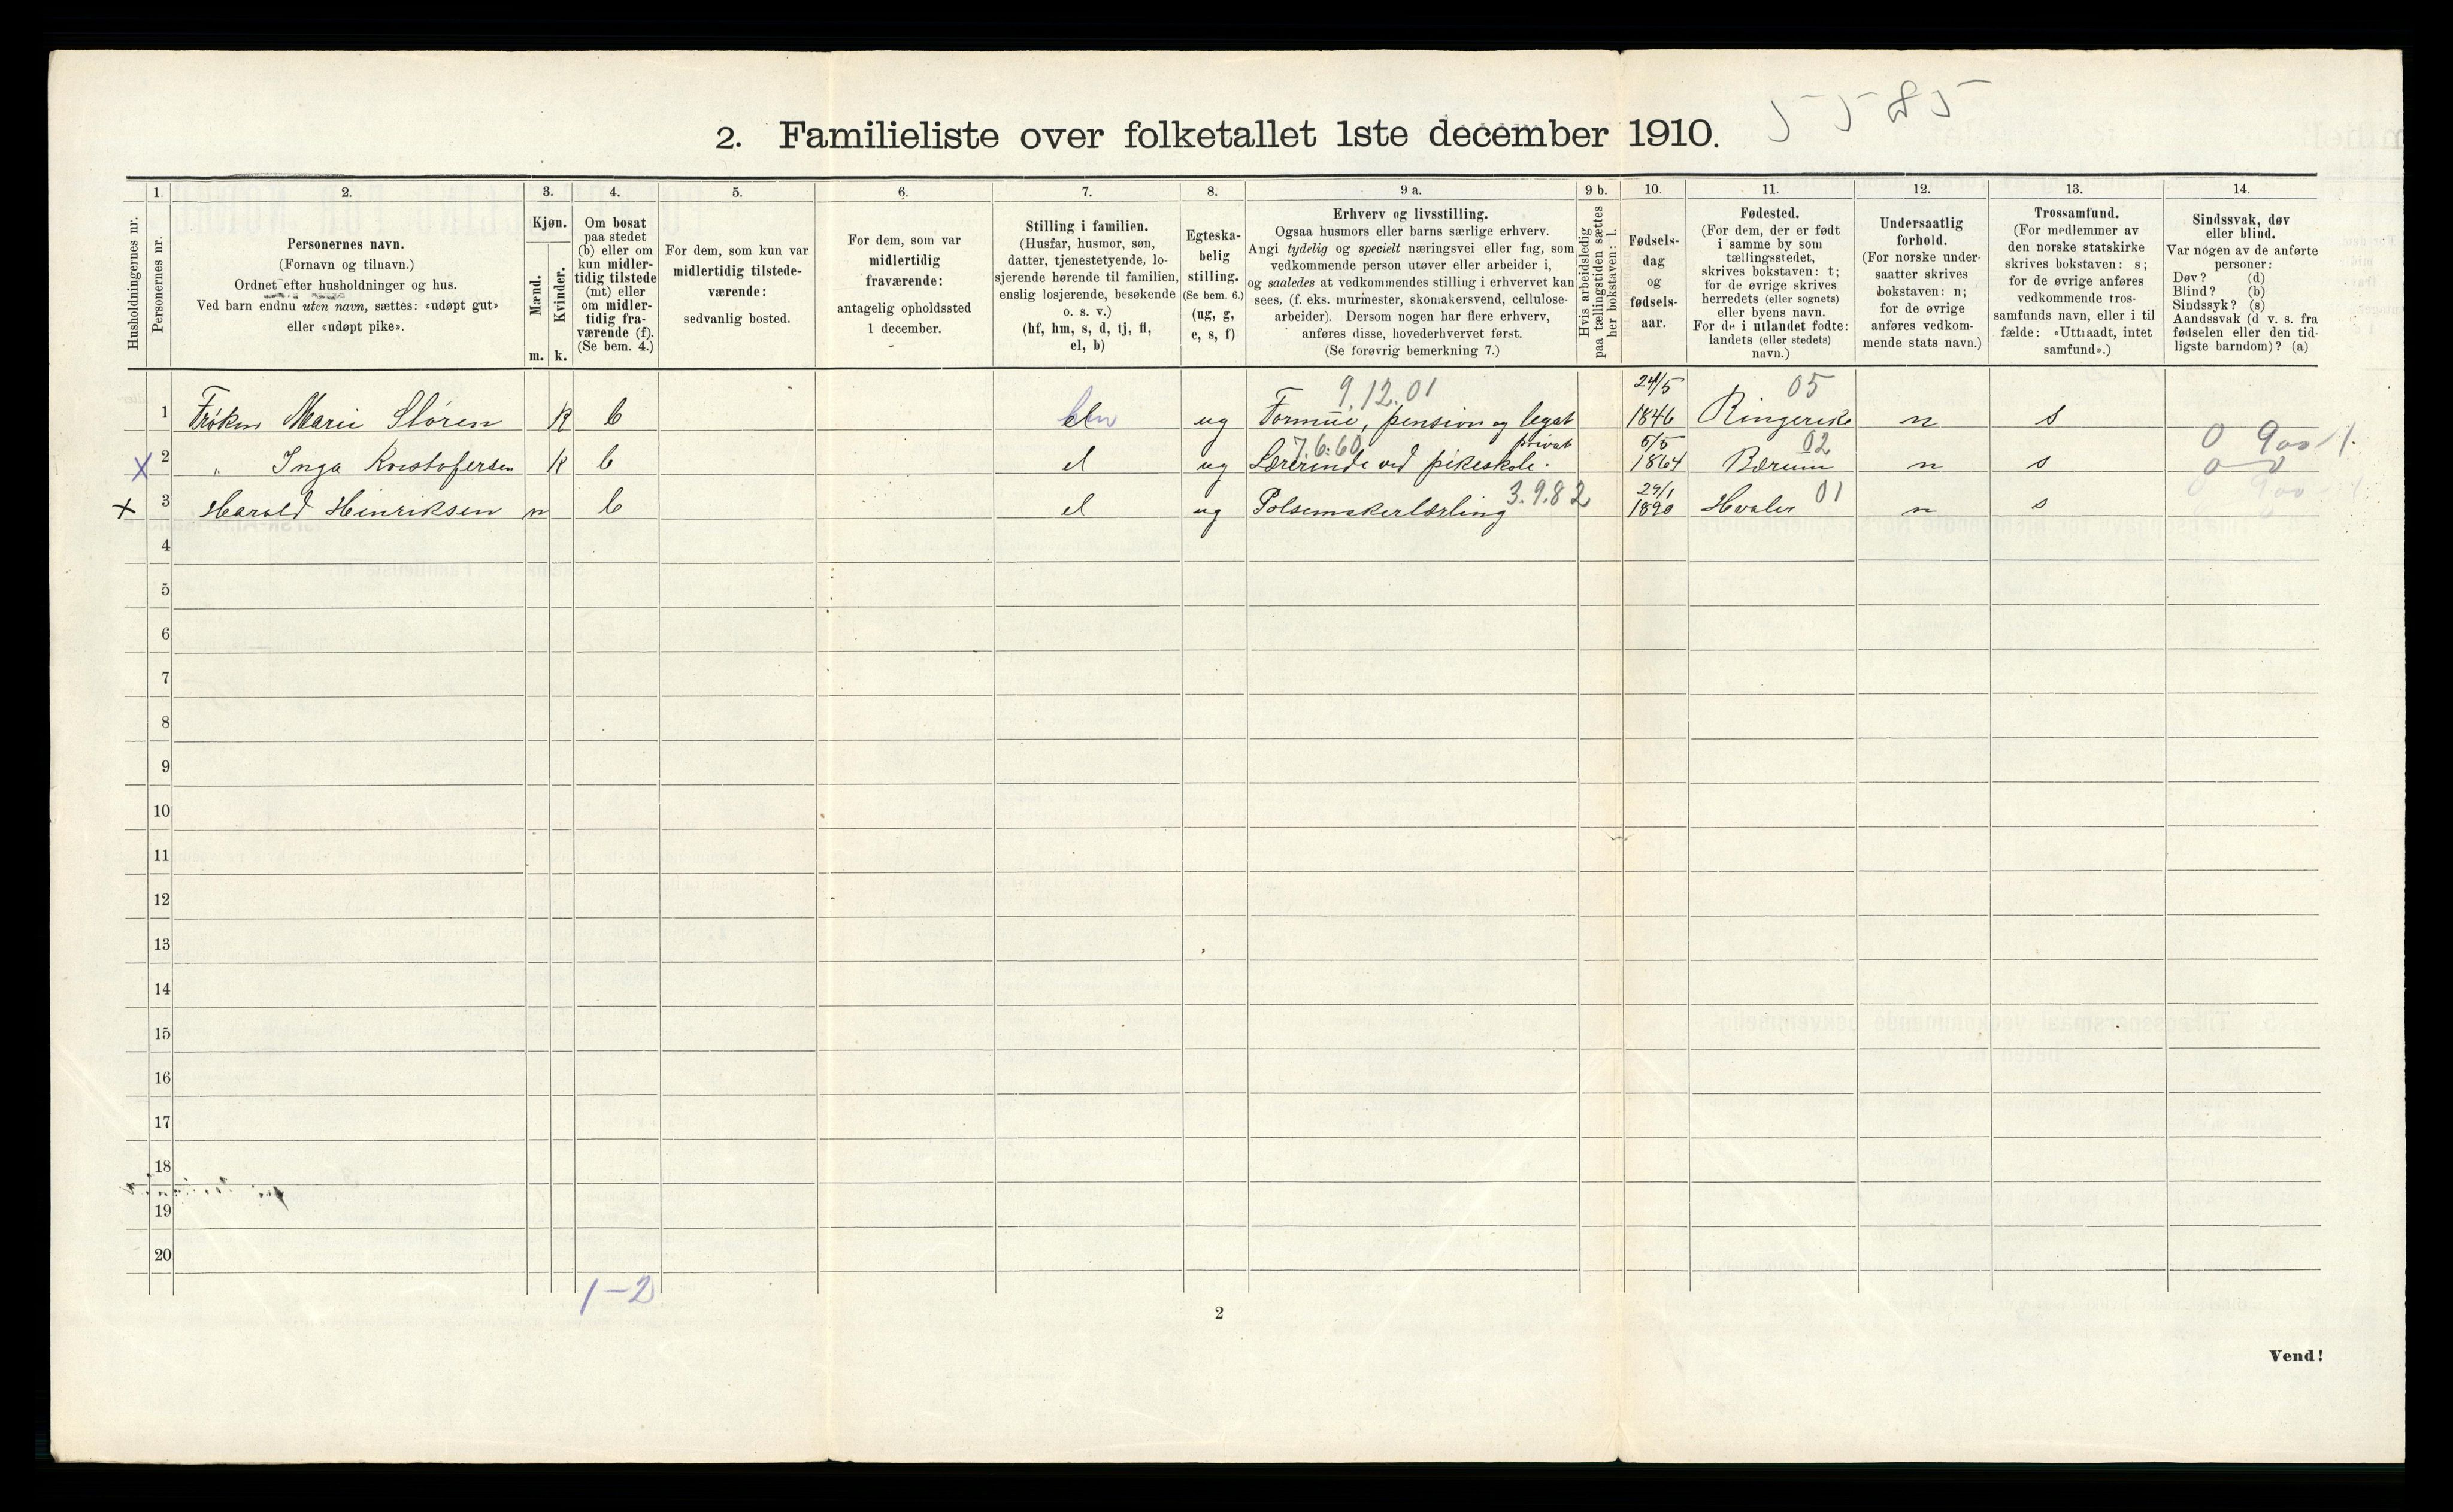 5585
2. Familieliste over folketallet 1ste december 1910.
1. 2. 3. 4. 5. 6. 7. 8. 9 a. 9 b. 10. 11. 12. 13. 14.
Husholdningernes nr.
Personernes nr.
Personernes navn.
(Fornavn og tilnavn.)
Ordnet efter husholdninger og hus.
Ved barn endnu uten navn, sættes: «udøpt gut»
eller «udøpt pike».
Kjøn.
Mænd.
Kvinder.
m. k.
Om bosat
paa stedet
(b) eller om
kun midler-
tidig tilstede
(mt) eller
om midler-
tidig fra-
værende (f).
(Se bem. 4.)
For dem, som kun var
midlertidig tilstede-
værende:
sedvanlig bosted.
For dem, som var
midlertidig
fraværende:
antagelig opholdssted
1 december.
Stilling i familien.
(Husfar, husmor, søn,
datter, tjenestetyende, lo-
sjerende hørende til familien,
enslig losjerende, besøkende
o. s. v.)
(hf, hm, s, d, tj, fl,
el, b)
Egteska-
belig
stilling.
(Se bem. 6.)
(ug, g,
e, s, f)
Erhverv og livsstilling.
Ogsaa husmors eller barns særlige erhverv.
Angi tydelig og specielt næringsvei eller fag, som
vedkommende person utøver eller arbeider i,
og saaledes at vedkommendes stilling i erhvervet kan
sees, (f. eks. murmester, skomakersvend, cellulose-
arbeider). Dersom nogen har flere erhverv,
anføres disse, hovederhvervet først.
(Se forøvrig bemerkning 7.)
Hvis arbeidsledig
paa tællingstiden sættes
her bokstaven: l.
Fødsels-
dag
og
fødsels-
aar.
Fødested.
(For dem, der er født
i samme by som
tællingsstedet,
skrives bokstaven: t;
for de øvrige skrives
herredets (eller sognets)
eller byens navn.
For de i utlandet fødte:
landets (eller stedets)
navn.)
Undersaatlig
forhold.
(For norske under-
saatter skrives
bokstaven: n;
for de øvrige
anføres vedkom-
mende stats navn.)
Trossamfund.
(For medlemmer av
den norske statskirke
skrives bokstaven: s;
for de øvrige anføres
vedkommende tros-
samfunds navn, eller i til
fælde: «Uttraadt, intet
samfund».)
Sindssvak, døv
eller blind.
Var nogen av de anførte
personer:
Døv? (d)
Blind? (b)
Sindssyk? (s)
Aandssvak (d v. s. fra
fødselen eller den tid-
ligste barndom)? (a)
9.12.01 24/5 05
1 Frøken Marie Støren k b ug Formue, pension og legat 1846 Ringerike n s
7.6.60 privat 5/5 02 0 900
X 2 " Inga Kristofersen k b el ug Lærerinde ved pikeskole. 1864 Bærum n s 0 0
3.9.82 29/1 01
X 3 Harald Hinriksen m b el ug Pølsemakerlærling 1890 Hvaler n s
4
5
6
7
8
9
10
11
12
13
14
15
16
17
18
19
20
1-2
2
Vend!